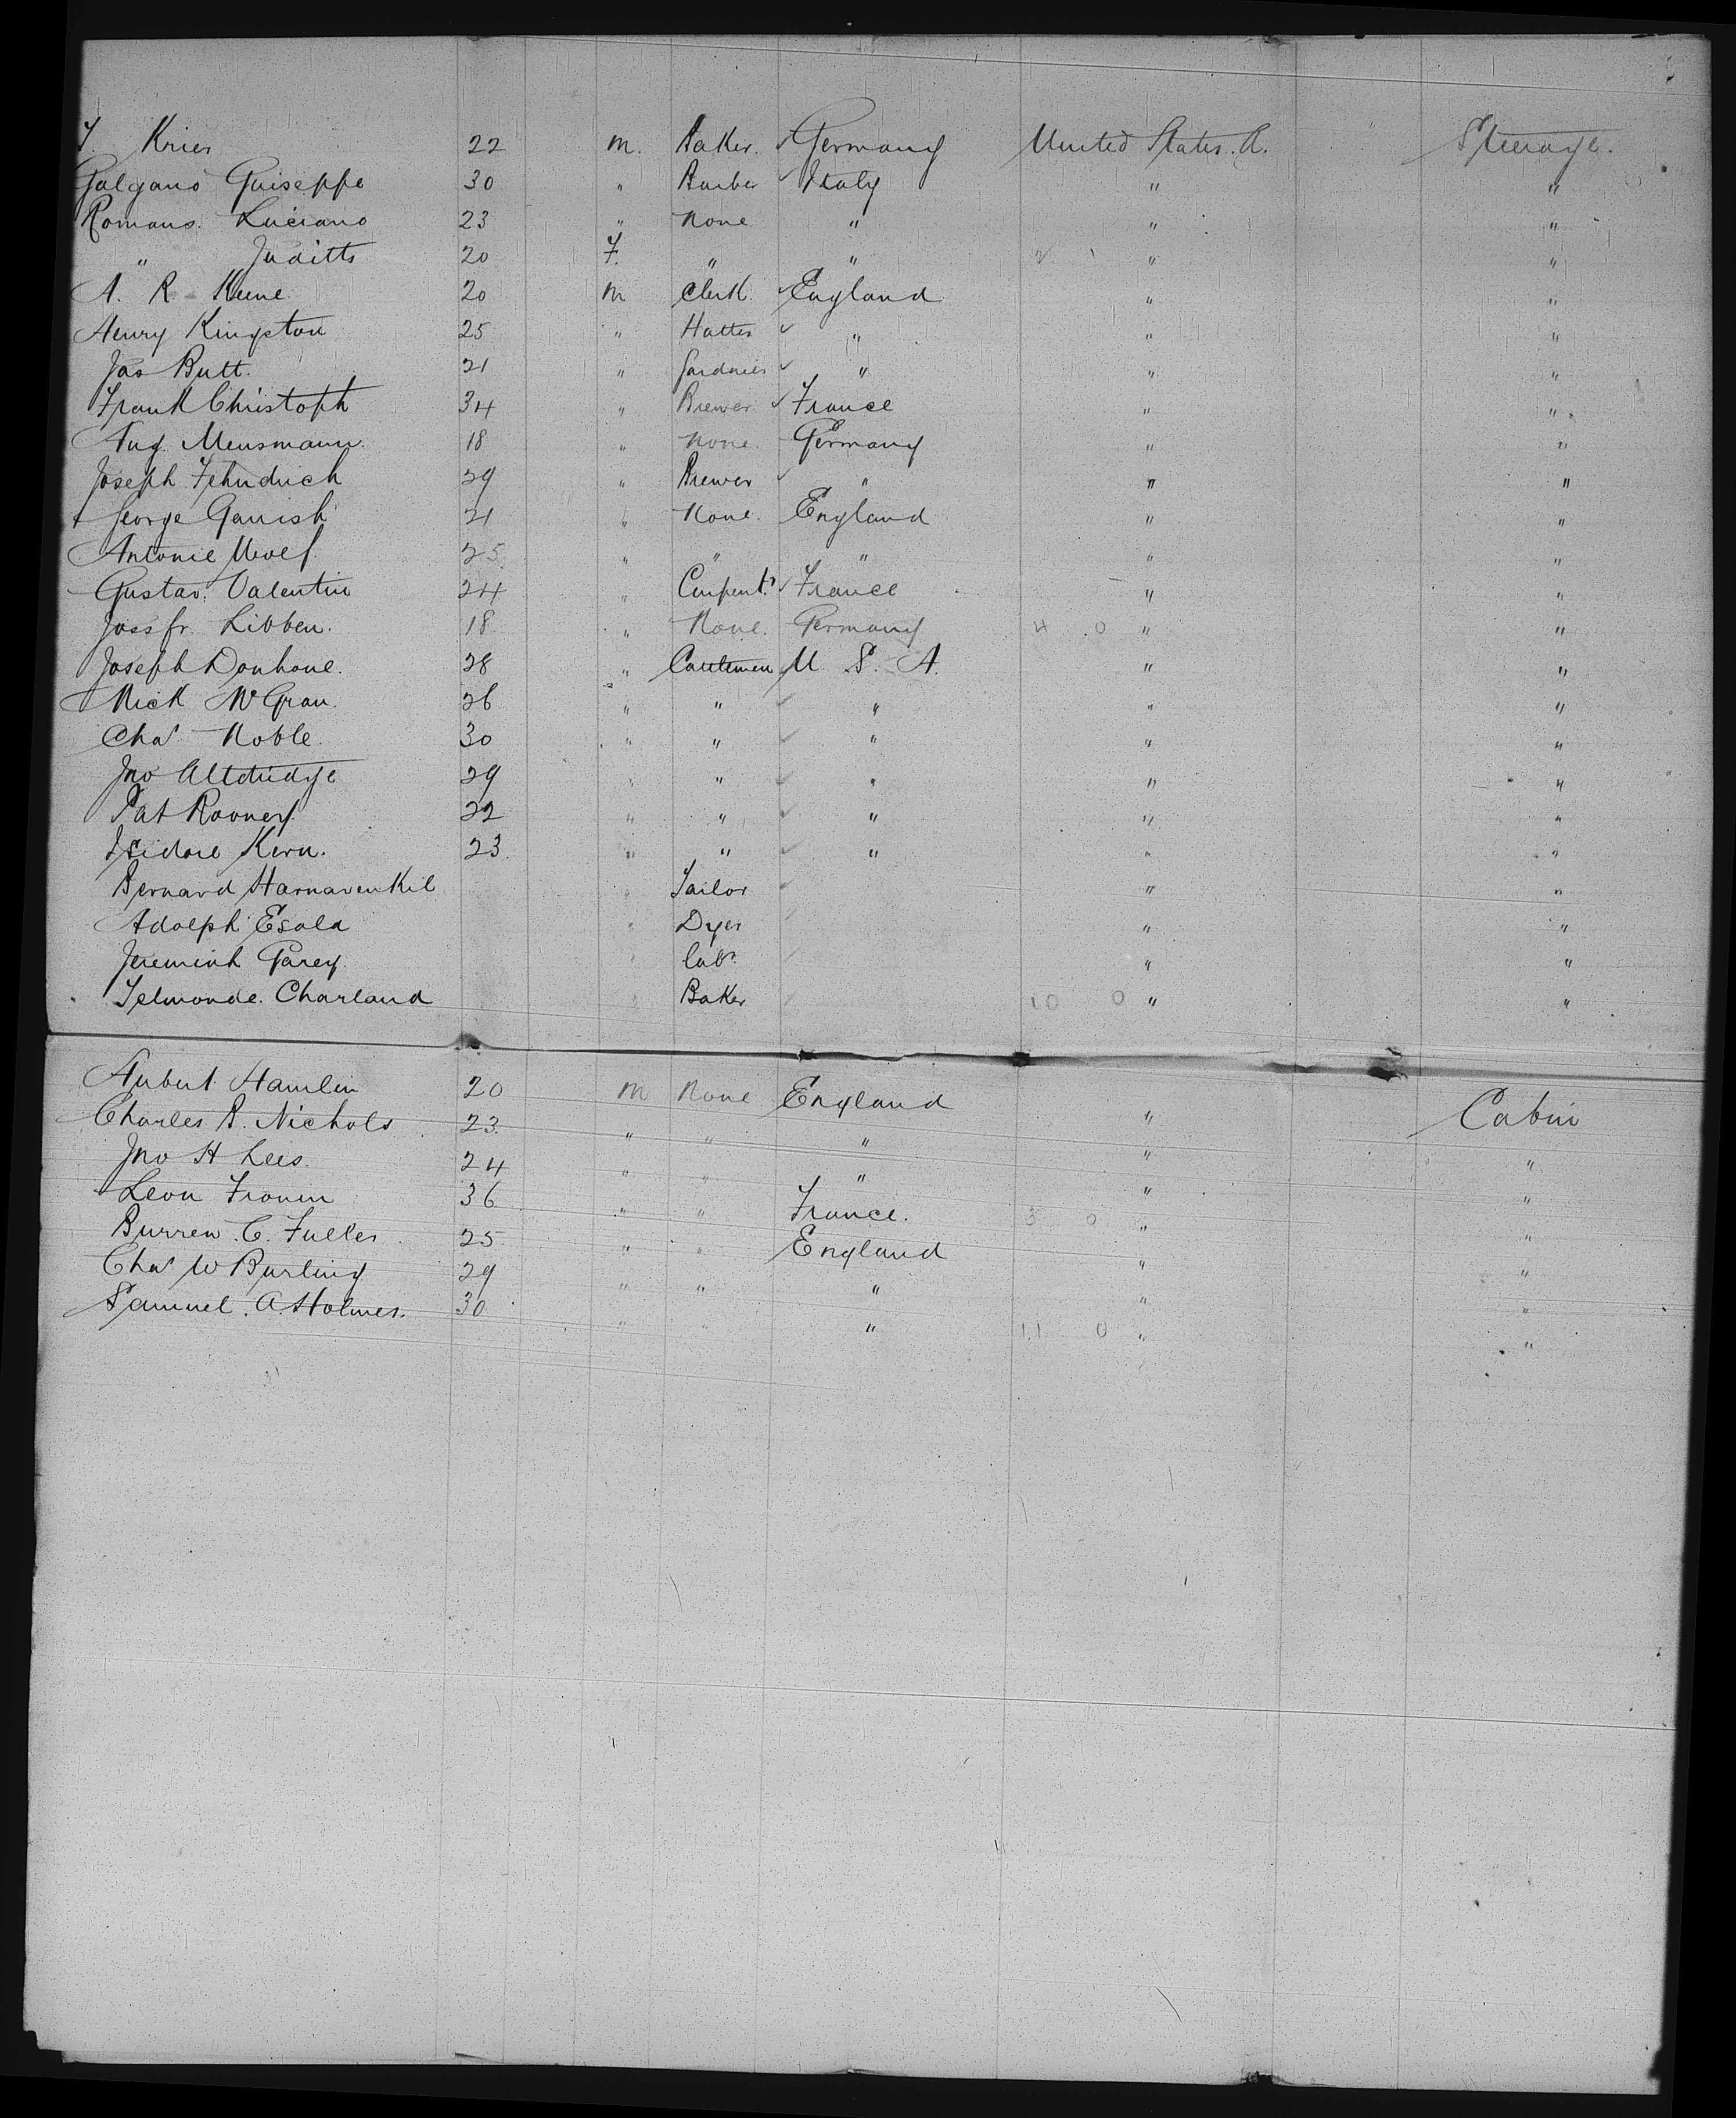 J. Krier 22 m. Baker. ✓ Germany United States. A. Steerage.
Galgano Guiseppe 30 " Barber ✓ Italy " "
Romano. Luciano 23 " None " " "
" Juditts 20 F. " " 2 " "
A. R Keene 20 m Clerk. ✓ England " "
Henry Kingston 25 " Hatter ✓ " " "
Jas Butt. 21 " Gardnier ✓ " " "
Frank Christoph 34 " Brewer ✓ France " "
Aug. Meusmann. 18 " None. Germany " "
Joseph Fehndrich 29 " Brewer ✓ " " "
George Garrish 21 " None. England " "
Antonie 25. " " " " "
Gustav. Valentin 24 " Carpentr ✓ France " "
Libben. 18 " None. Germany 4 0 " "
Joseph Donhoue. 28 " Cattlemen U. S. A. " "
Mick McGrau. 26 " " ✓ " " "
Chas Noble. 30 " " ✓ " " "
Jno Altdridge 29 " " ✓ " " "
Pat Rooney. 22 " " ✓ " " "
Isidore Kern. 23. " " ✓ " " "
Bernard Harnavenkil " Tailor ✓ " "
Adolph Esola " Dyer " "
Jeremiah Garey. " labr. " "
Telmonde. Charland " Baker 10 0 " "
Hubert Hamlin 20 m None England " Cabin
Charles R. Nichols 23. " " " " "
Jno H Lees. 24 " " " " "
Leon Fronin 36 " " France. 3 0 " "
Burren. C. Fuller 25 " " England " "
Chas W Burling 29 " " " " "
Samuel. A. Holmes. 30 " " " 11 0 " "